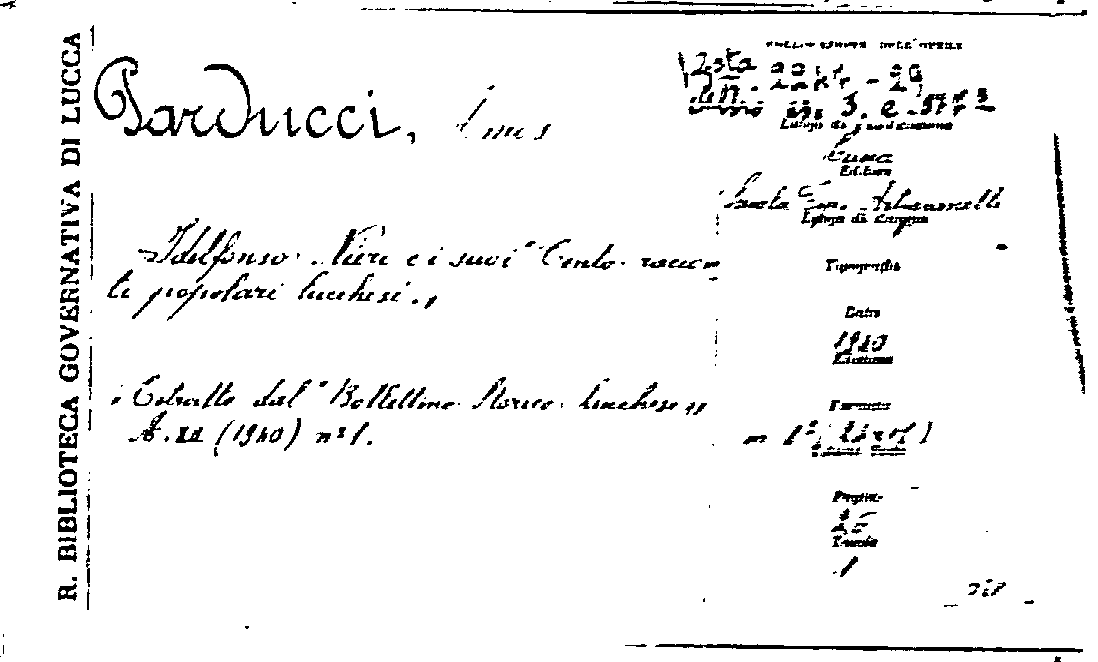 R. BIBLIOTECA GOVERNATIVA DI LUCCA
Parducci, Amos
Idelfonso Nieri e i suoi "Cento raccon
ti popolari lucchesi.„
Estratto dal "Bollettino Storico lucchese„
A. XII (1940) n° 1.
COLLOCAZIONE DELL'OPERA
Busta
2244 - 29
3. e
Luogo di pubblicazione
Lucca
Editore
Scuola Tip. Artigianelli
Luogo di stampa
Tipografia
Data
1940
Edizione
Formato
Pagine
25
Tavole
1